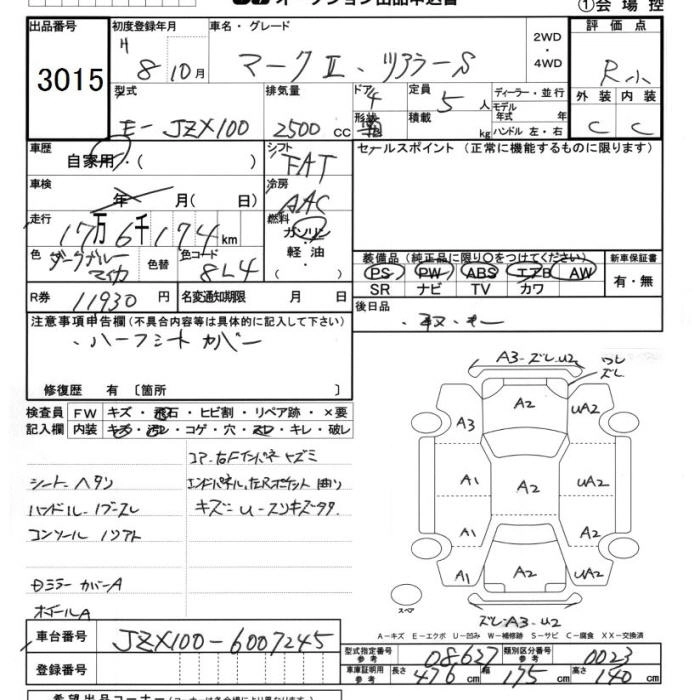 オークション出品申込書
①会場控
出品番号
3015
初度登録年月
H 8年10月
車名・グレード
マークⅡ・ツアラーS
2WD
・
4WD
評価点
R小
外装 内装
C C
型式
E-JZX100
排気量
2500 cc
ドア
4
形状
定員
5人
積載
kg
ディーラー・並行
モデル年式 年
ハンドル 左・右
車歴
自家用・( )
シフト
FAT
車検
年 月( 日)
冷房
AAC
走行
17万6千174km
燃料
ガソリン
軽油
( )
色
ダークブルーマイカ
色替
色コード
8L4
R券
11930円
名変通知期限 月 日
セールスポイント(正常に機能するものに限ります)
装備品(純正品に限り○をつけてください)
PS PW ABS エアB AW
SR ナビ TV カワ
新車保証書
有・無
後日品
・取・キー
注意事項申告欄(不具合内容等は具体的に記入して下さい)
・ハーフシートカバー
修復歴 有〔箇所 〕
検査員記入欄
FW キズ・飛石・ヒビ割・リペア跡・×要
内装 キズ・汚レ・コゲ・穴・スレ・キレ・破レ
コア、右Fインパネキズミ
シートヘタリ
エンドパネル、左Rポイント曲り
ハンドル-1ブスレ
キズ・U-スリキズタタ.
コンソールリフト
Dミラーカバー A
ホイールA
A3-ズレ.U2
ワレ
ズレ
A2
UA2
A3
A1
A2
UA2
A1
A2
A1
A2
UA2
スペア
ズレ.A3-U2
A-キズ E-エクボ U-凹み W-補修跡 S-サビ C-腐食 XX-交換済
車台番号
JZX100-6007245
登録番号
型式指定番号 参考
08627
類別区分番号 参考
0023
車庫証明用 参考
長さ 476cm 幅 175cm 高さ 140cm
希望出品コーナー